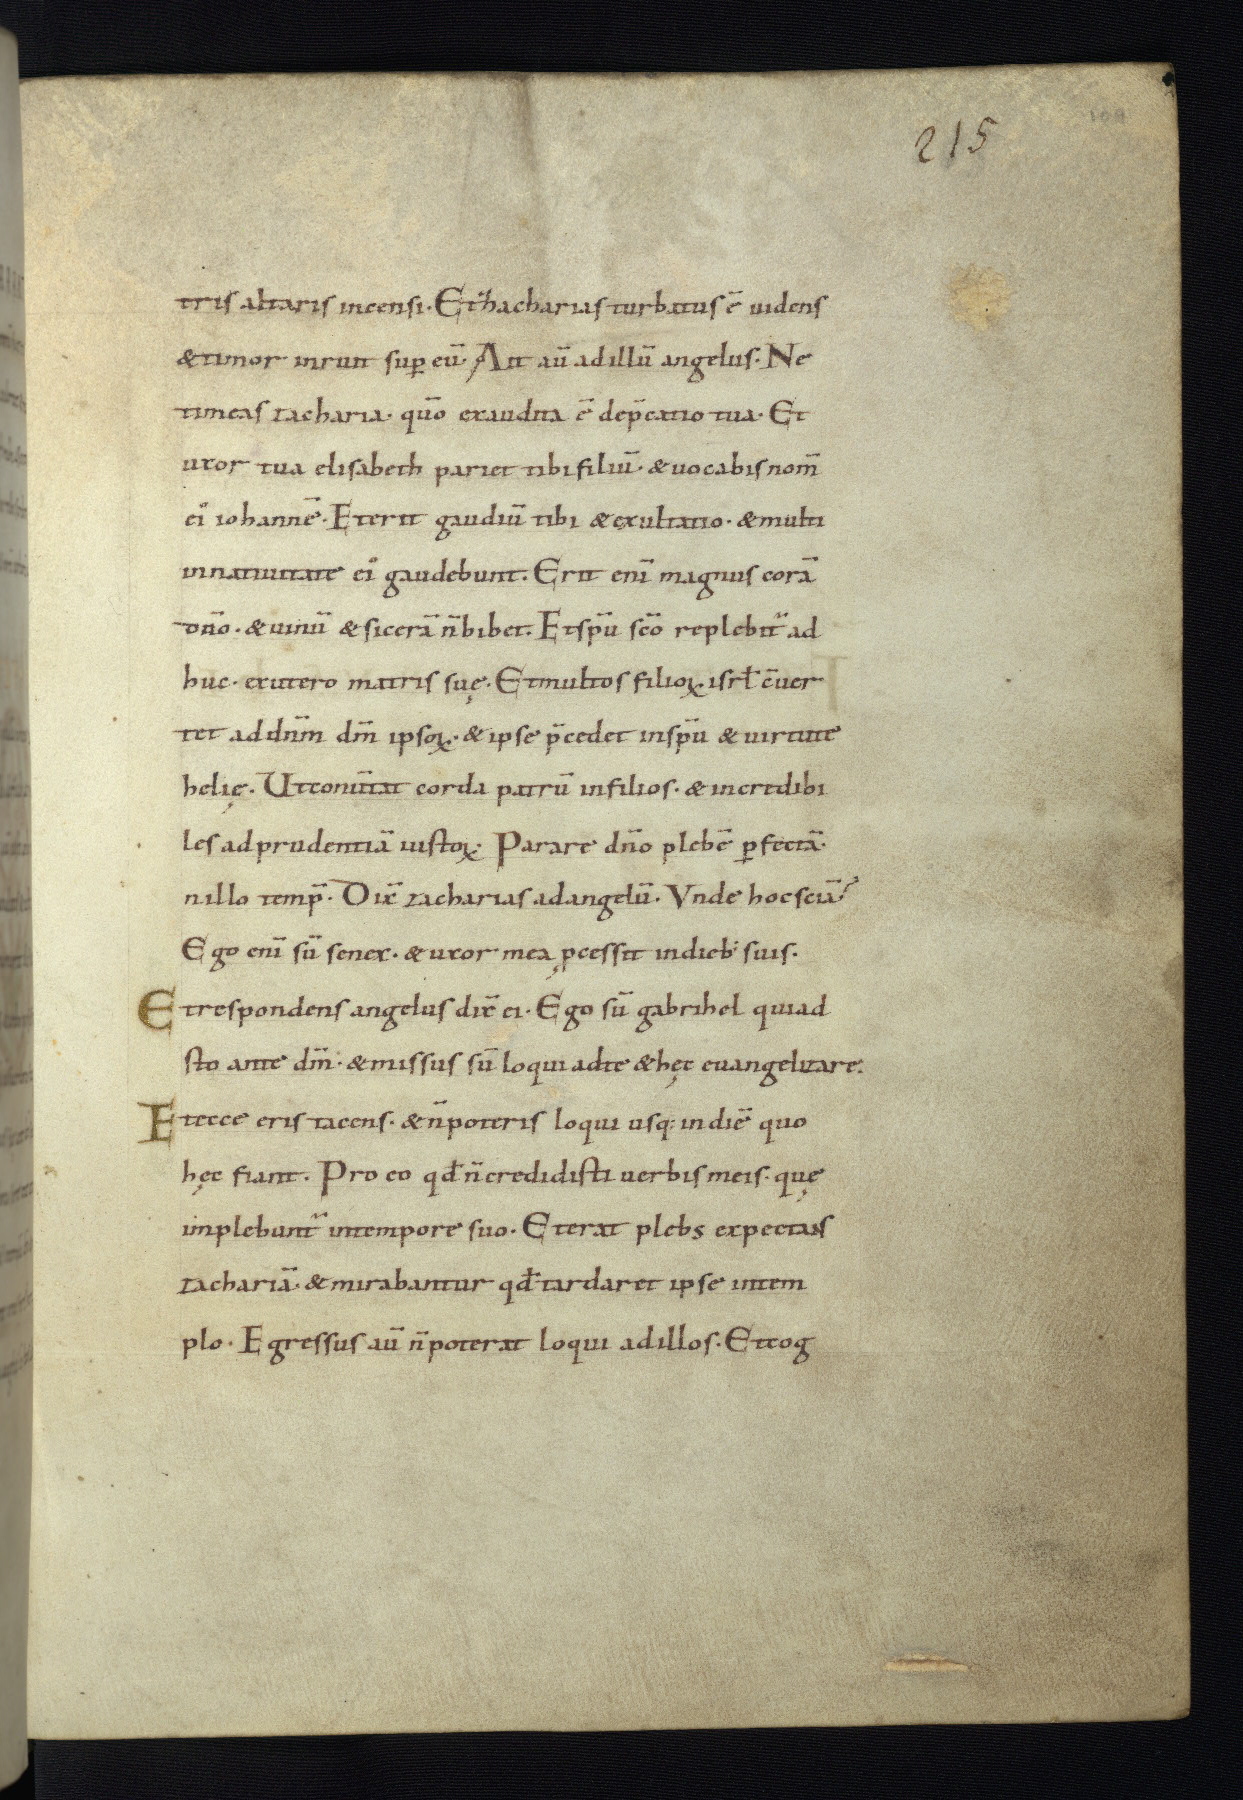 215
109
tris altaris incensi. Et zhacharias turbatus ē uidens
& timor inruit sup̱ eū. Ait aū ad illū angelus. Ne
timeas zacharia. qūo exaudita ē dep̄catio tua. Et
uxor tua elisabeth pariet tibi filiū. & uocabis nom̄
eiꝰ iohannē. Et erit gaudiū tibi & exultatio. & multi
in natiuitate eiꝰ gaudebunt. Erit enī magnus corā
dn̄o. & uinū & sicerā n̄ bibet. Et sp̄u sc̄o replebit᷑ ad
huc. ex utero matris suę. Et multos filioꝝ isrł c̄uer
tet ad dn̄m dm̄ ipsoꝝ. & ipse p̄cedet in sp̄u & uirtute
helię. Ut conu̅tat corda patrū in filios. & incredibi
les ad prudentiā iustoꝝ. Parare dn̄o plebē ꝑfectā.
nillo temp̄. Dix̄ zacharias ad angelū. Vnde hoc sciā?
Ego enī sū senex. & uxor mea ꝓcessit in dieb; suis.
Et respondens angelus dix̄ ei. Ego sū gabrihel qui ad
sto ante dm̄. & missus sū loqui ad te & hęc euangelizare.
Et ecce eris tacens. & n̄ poteris loqui usq; in diē quo
hęc fiant. Pro eo qđ n̄ credidisti uerbis meis. quę
implebunt᷑ in tempore suo. Et erat plebs expectans
zachariā. & mirabantur qđ tardaret ipse in tem
plo. Egressus aū n̄ poterat loqui ad illos. Et cog